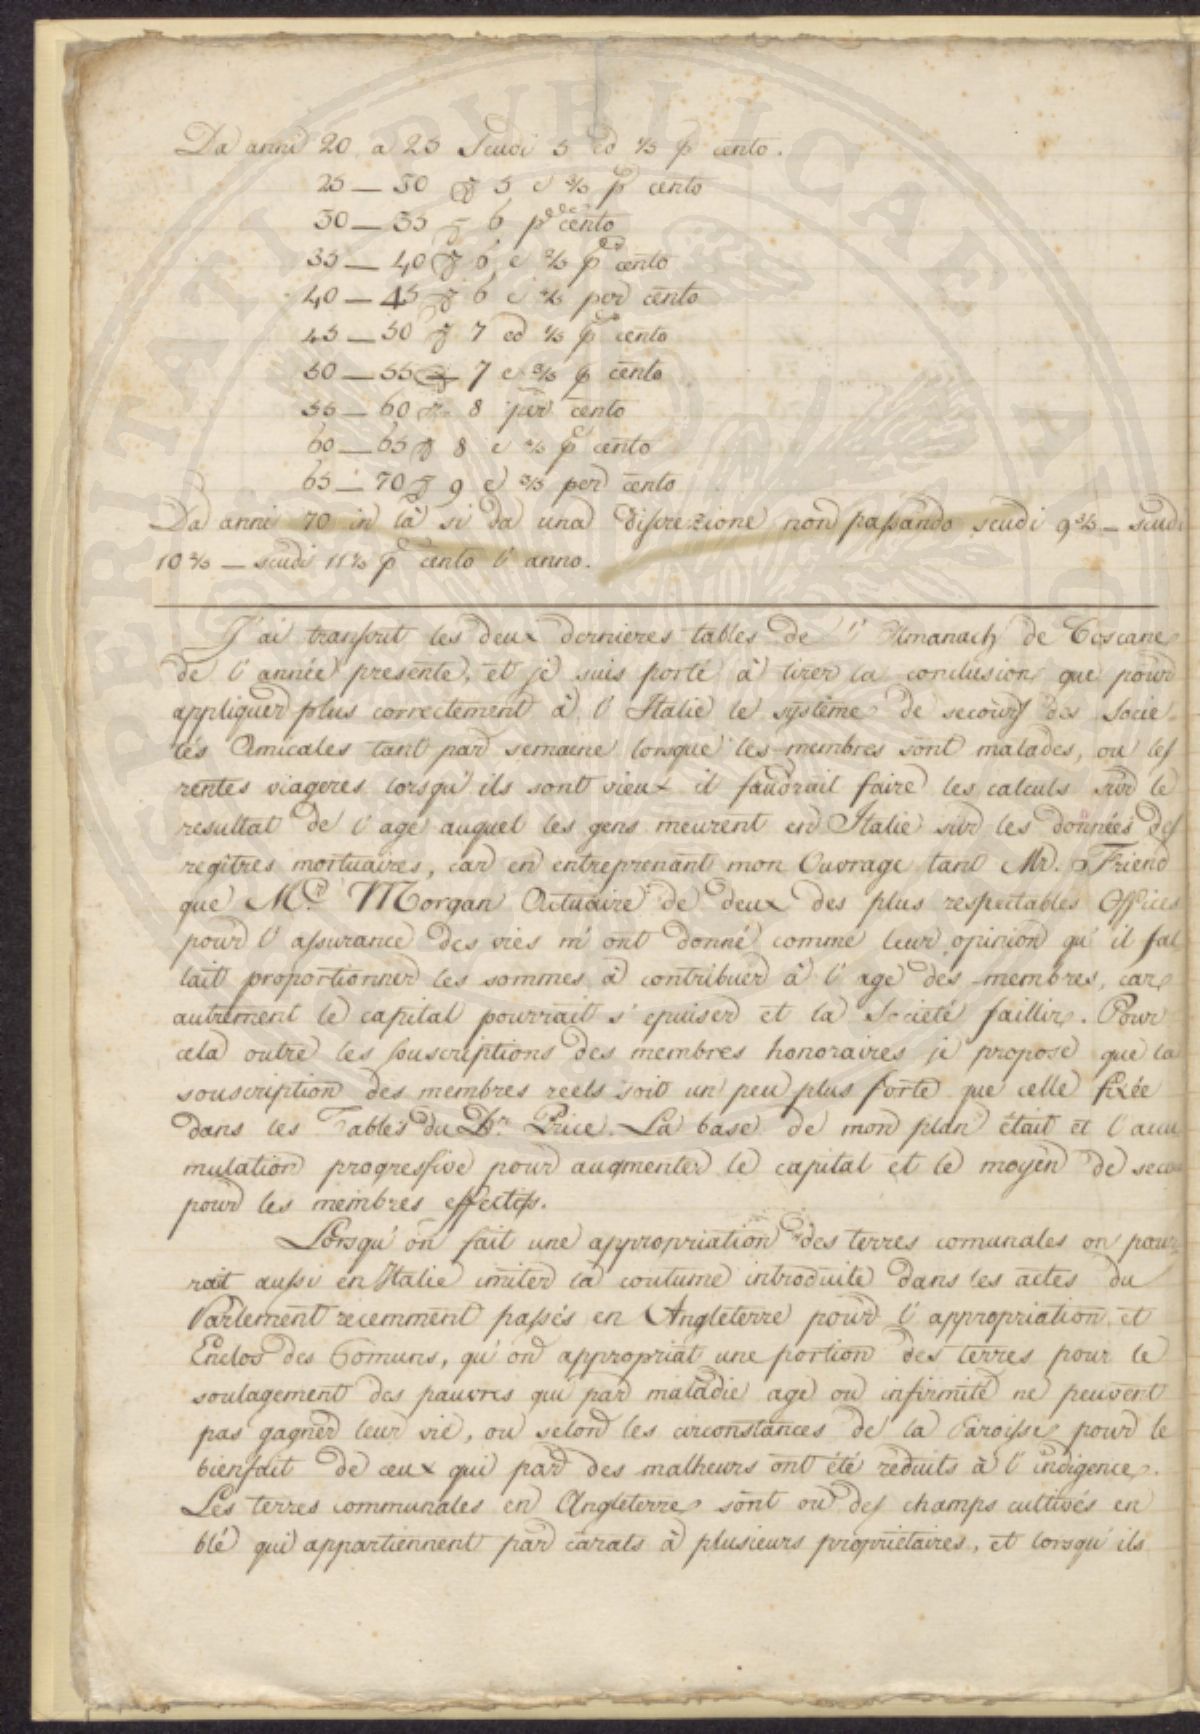 Da anni 20 a 25 Scudi 5 ed ⅓ p cento.
25 — 30 5 e ⅔ p cento
30 — 35 6 p cento
35 — 40 6 e ⅓ p cento
40 — 45 6 e ⅔ per cento
45 — 50 7 ed ⅓ p cento
50 — 55 7 e ⅔ p cento
55 — 60 8 per cento
60 — 65 8 e ⅔ p cento
65 — 70 9 e ⅔ per cento
Da anni 70 in là si da una discrezione non passando scudi 9 ⅔ — scudi
10 ⅔ — scudi 11 ⅔ p cento l'anno.
J'ai transcrit les deux dernieres tables de l'Almanach de Toscane
de l'année presente, et je suis porté à tirer la conclusion que pour
appliquer plus correctement à l'Italie le systême de secours des Socie
tés Amicales tant par semaine lorsque les membres sont malades, ou les
rentes viageres lorsqu'ils sont vieux il faudrait faire les calculs sur le
resultat de l'age auquel les gens meurent en Italie sur les données des
regîtres mortuaires, car en entreprenant mon Ouvrage tant Mr. Friend
que Mr. Morgan Actuaire de deux des plus respectables Offices
pour l'assurance des vies m'ont donné comme leur opinion qu'il fal
lait proportionner les sommes à contribuer à l'age des membres, car
autrement le capital pourrait s'epuiser et la Societé faillir. Pour
cela outre les souscriptions des membres honoraires je propose que la
souscription des membres reels soit un peu plus forte que celle fixée
dans les Tables du Dr. Price. La base de mon plan était et l'accu
mulation progressive pour augmenter le capital et le moyen de secou
pour les membres effectifs.
Lorsqu'on fait une appropriation des terres comunales on pour
rait aussi en Italie imiter la coutume introduite dans les actes du
Parlement recemment passés en Angleterre pour l'appropriation et
Enclos des Comuns, qu'on appropriat une portion des terres pour le
soulagement des pauvres qui par maladie age ou infirmité ne peuvent
pas gagner leur vie, ou selon les circonstances de la Paroisse pour le
bienfait de ceux qui par des malheurs ont été reduits à l'indigence.
Les terres communales en Angleterre sont ou des champs cultivés en
blé qui appartiennent par carats à plusieurs proprietaires, et lorsqu'ils